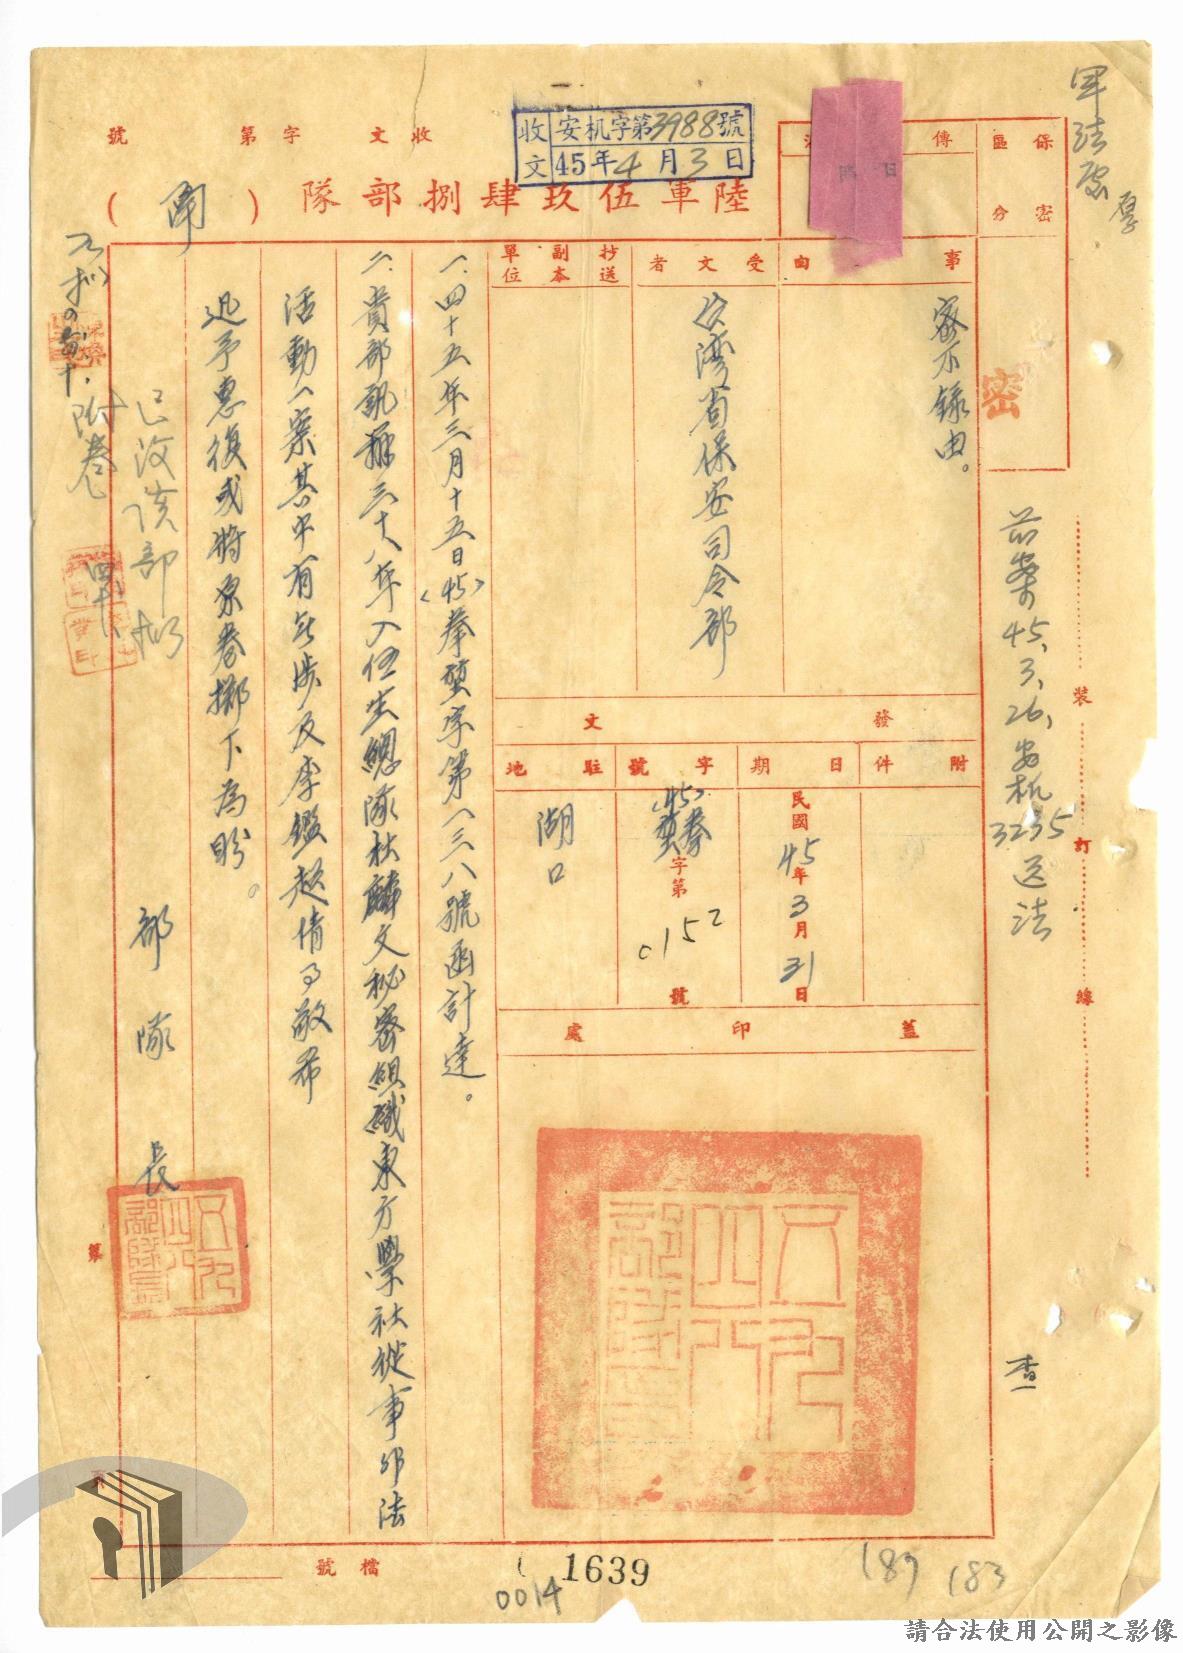 軍法處
保密
區分
密
傳
收文 安机字第3988號
45年4月3日
收文 字第 號
陸軍伍玖肆捌部隊(函)
事由
密不錄由。
受文者
台灣省保安司令部
抄送
副本
單位
發文
附件
日期
民國45年3月31日
字號
(45)
字第0152號
駐地
湖口
蓋印處
一、四十五年三月十五日(45)拳蟹字第一三八號函計達。
二、貴部訊辦三十八年入伍生總隊杜麟文秘密組織東方學社從事非法
活動一案其中有無涉及李鑑超情事敬希
迅予惠復或將原卷擲下為盼。
部隊長
五九四八部隊長
五九四八部隊
附卷
前案45、3、26、安机
3235送法
查
裝
訂
線
檔號
1639
0014
189
183
請合法使用公開之影像